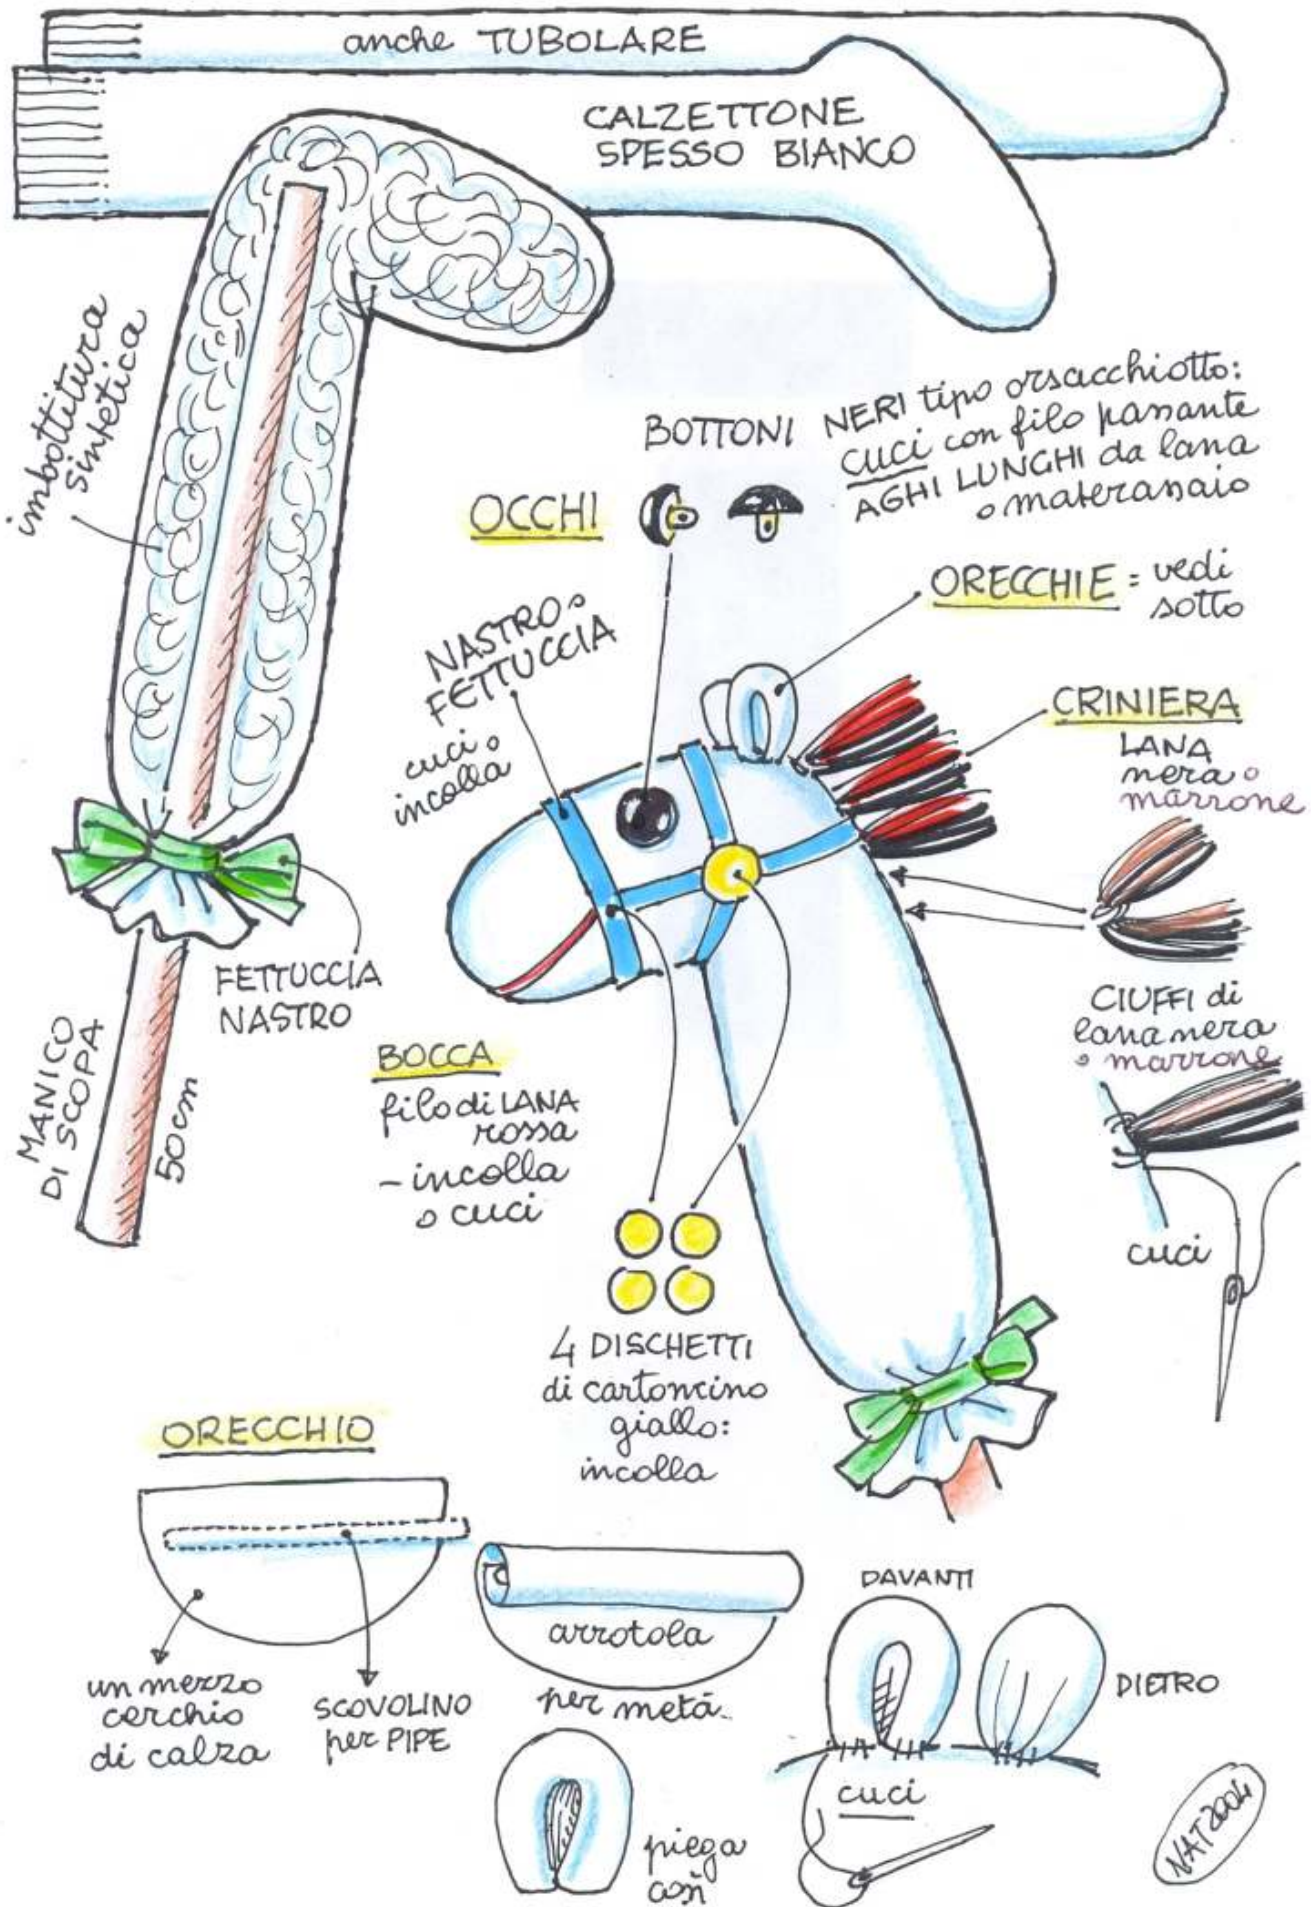 anche TUBOLARE
CALZETTONE
SPESSO BIANCO
imbottitura
sintetica
BOTTONI NERI tipo orsacchiotto:
cuci con filo passante
AGHI LUNGHI da lana
o materassaio
OCCHI
ORECCHIE = vedi
sotto
NASTRO o
FETTUCCIA
cuci o
incolla
CRINIERA
LANA
nera o
marrone
FETTUCCIA
NASTRO
MANICO
DI SCOPA
50 cm
CIUFFI di
lana nera
o marrone
BOCCA
filo di LANA
rossa
- incolla
o cuci
cuci
4 DISCHETTI
di cartoncino
giallo:
incolla
ORECCHIO
un mezzo
cerchio
di calza
SCOVOLINO
per PIPE
arrotola
per metà
DAVANTI
DIETRO
cuci
piega
così
NAT2004